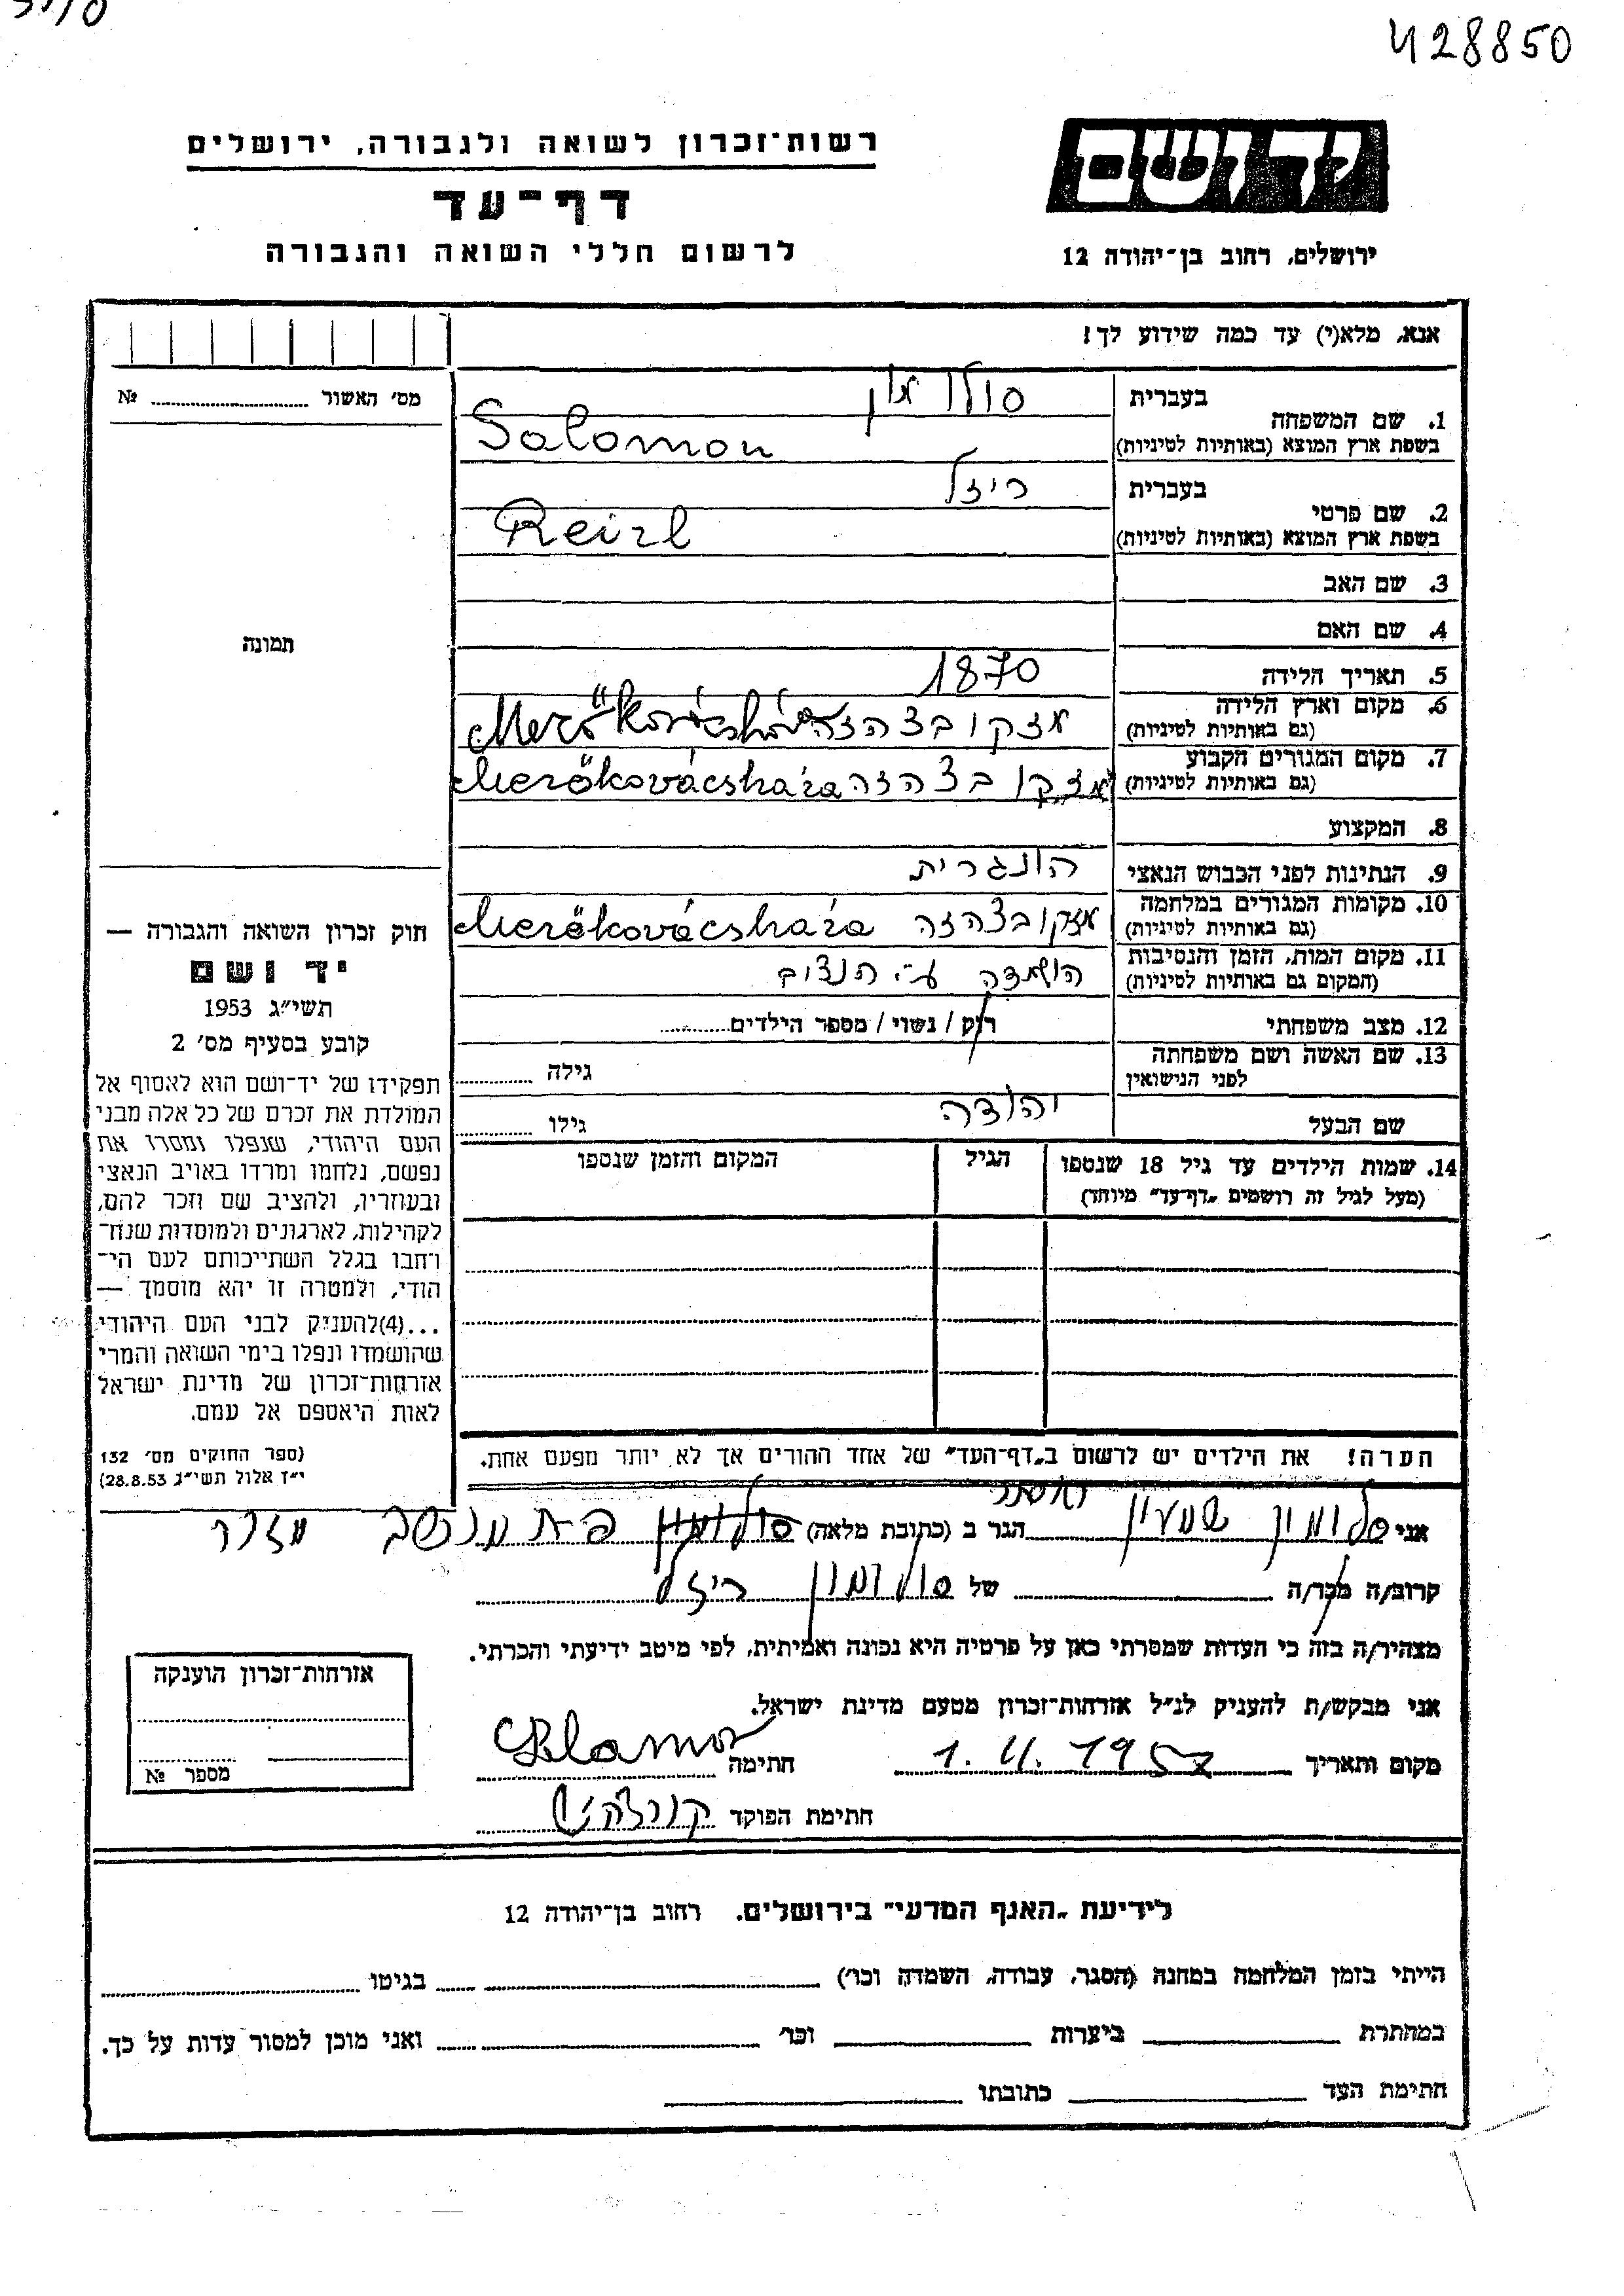 428850
יד ושם
ירושלים, רחוב בן־יהודה 12
רשות־זכרון לשואה ולגבורה, ירושלים
דף־עד
לרשום חללי השואה והגבורה
אנא, מלא(י) עד כמה שידוע לך!
מס' האשור № 
תמונה
חוק זכרון השואה והגבורה —
יד ושם
תשי״ג 1953
קובע בסעיף מס' 2
תפקידו של יד־ושם הוא לאסוף אל
המולדת את זכרם של כל אלה מבני
העם היהודי, שנפלו ומסרו את
נפשם, נלחמו ומרדו באויב הנאצי
ובעוזריו, ולהציב שם וזכר להם,
לקהילות, לארגונים ולמוסדות שנח־
רחבו בגלל השתייכותם לעם הי־
הודי, ולמטרה זו יהא מוסמך —
...(4)להעניק לבני העם היהודי
שהושמדו ונפלו בימי השואה והמרי
אזרחות־זכרון של מדינת ישראל
לאות היאספם אל עמם.
(ספר החוקים מס' 132
י״ז אלול תשי״ג 28.8.53)
בעברית סולומון
1. שם המשפחה
בשפת ארץ המוצא (באותיות לטיניות) Salomon
בעברית ריזל
2. שם פרטי
בשפת ארץ המוצא (באותיות לטיניות) Reizl
3. שם האב
4. שם האם
5. תאריך הלידה 1870
6. מקום וארץ הלידה
(גם באותיות לטיניות)
7. מקום המגורים הקבוע
(גם באותיות לטיניות) Mezőkovácsháza
8. המקצוע
9. הנתינות לפני הכבוש הנאצי הונגרית
10. מקומות המגורים במלחמה
(גם באותיות לטיניות) מזקובצהזה Mezőkovácsháza
11. מקום המות, הזמן והנסיבות
(המקום גם באותיות לטיניות) הושמדה ע״י הנצים
12. מצב משפחתי רוק / נשוי / מספר הילדים
13. שם האשה ושם משפחתה
לפני הנישואין גילה
שם הבעל יהודה גילו
14. שמות הילדים עד גיל 18 שנספו הגיל המקום והזמן שנספו
(מעל לגיל זה רושמים „דף־עד״ מיוחד)
הערה! את הילדים יש לרשום ב„דף־העד״ של אחד ההורים אך לא יותר מפעם אחת.
אני סלומון שמעון הגר ב (כתובת מלאה) מושב עזר
קרוב/ה מכר/ה של סולומון ריזל
מצהיר/ה בזה כי העדות שמסרתי כאן על פרטיה היא נכונה ואמיתית, לפי מיטב ידיעתי והכרתי.
אני מבקש/ת להעניק לנ״ל אזרחות־זכרון מטעם מדינת ישראל.
מקום ותאריך 1. 4. 1957 חתימה
חתימת הפוקד
אזרחות־זכרון הוענקה
מספר №
לידיעת „האגף המדעי״ בירושלים. רחוב בן־יהודה 12
הייתי בזמן המלחמה במחנה (הסגר, עבודה, השמדה וכו') בגיטו
במחתרת ביערות וכו' ואני מוכן למסור עדות על כך.
חתימת העד כתובתו